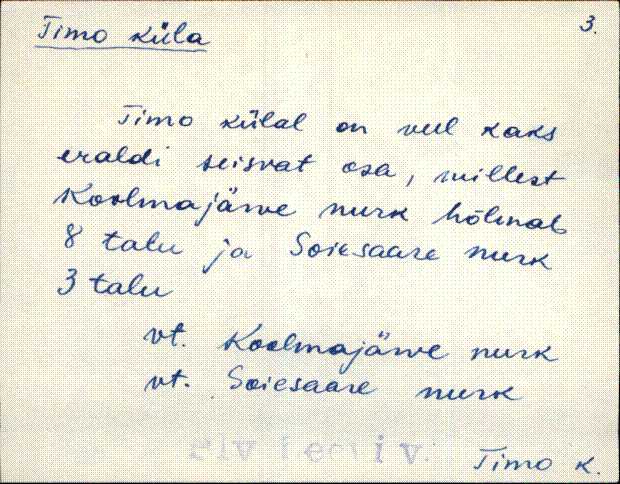 Timo küla
3.
Timo külal on veel kaks
eraldi seisvat osa, millest
Koolmajärve nurk hõlmab
8 talu ja Soiesaare nurk
3 talu
vt. Koolmajärve nurk
vt. Soiesaare nurk
Timo k.